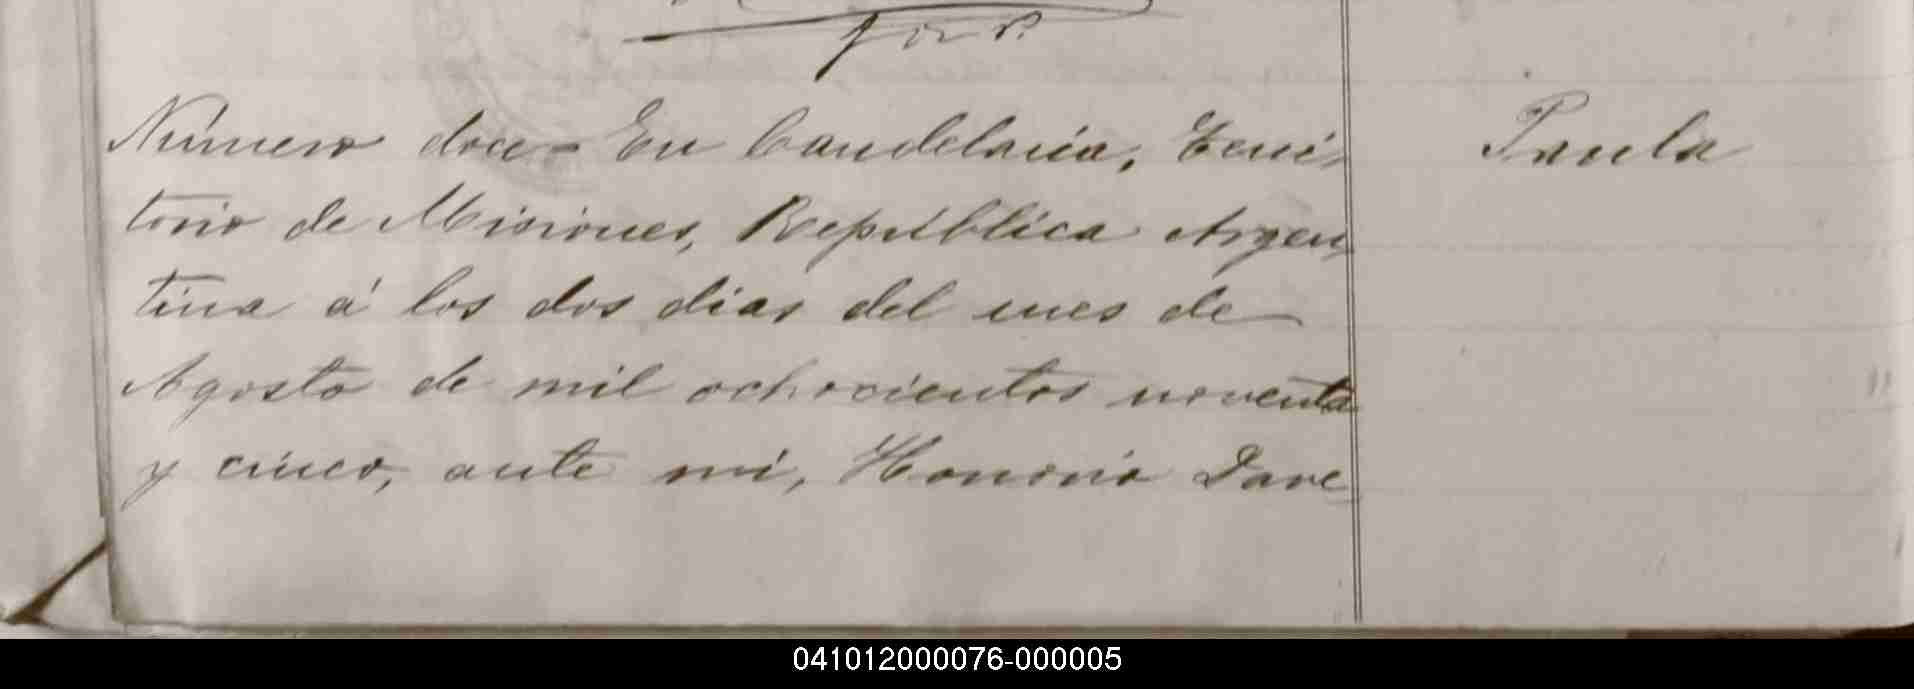 Número doce - En Candelaria, Terri-
torio de Misiones, República Argen-
tina á los dos dias del mes de
Agosto de mil ochocientos noventa
y cinco, ante mi, Honorio
Paula
041012000076-000005